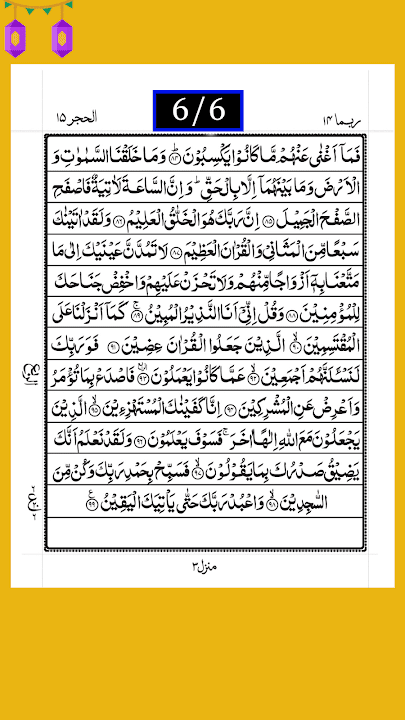 ربما ۱۴
6/6
الحجر ۱۵
فَمَآ اَغْنٰى عَنْهُمْ مَّا كَانُوْا يَكْسِبُوْنَ ؕ﴿۸۴﴾ وَمَا خَلَقْنَا السَّمٰوٰتِ وَ
الْاَرْضَ وَمَا بَيْنَهُمَاۤ اِلَّا بِالْحَقِّ ؕ وَاِنَّ السَّاعَةَ لَاٰتِيَةٌ فَاصْفَحِ
الصَّفْحَ الْجَمِيْلَ ﴿۸۵﴾ اِنَّ رَبَّكَ هُوَ الْخَلّٰقُ الْعَلِيْمُ ﴿۸۶﴾ وَلَقَدْ اٰتَيْنٰكَ
سَبْعًا مِّنَ الْمَثَانِيْ وَالْقُرْاٰنَ الْعَظِيْمَ ﴿۸۷﴾ لَا تَمُدَّنَّ عَيْنَيْكَ اِلٰى مَا
مَتَّعْنَا بِهٖۤ اَزْوَاجًا مِّنْهُمْ وَلَا تَحْزَنْ عَلَيْهِمْ وَاخْفِضْ جَنَاحَكَ
لِلْمُؤْمِنِيْنَ ﴿۸۸﴾ وَقُلْ اِنِّيْۤ اَنَا النَّذِيْرُ الْمُبِيْنُ ﴿۸۹﴾ كَمَاۤ اَنْزَلْنَا عَلَى
الْمُقْتَسِمِيْنَ ﴿۹۰﴾ الَّذِيْنَ جَعَلُوا الْقُرْاٰنَ عِضِيْنَ ﴿۹۱﴾ فَوَرَبِّكَ
لَنَسْـَٔلَنَّهُمْ اَجْمَعِيْنَ ﴿۹۲﴾ عَمَّا كَانُوْا يَعْمَلُوْنَ ﴿۹۳﴾ فَاصْدَعْ بِمَا تُؤْمَرُ
وَاَعْرِضْ عَنِ الْمُشْرِكِيْنَ ﴿۹۴﴾ اِنَّا كَفَيْنٰكَ الْمُسْتَهْزِءِيْنَ ﴿۹۵﴾ الَّذِيْنَ
يَجْعَلُوْنَ مَعَ اللّٰهِ اِلٰهًا اٰخَرَ ۚ فَسَوْفَ يَعْلَمُوْنَ ﴿۹۶﴾ وَلَقَدْ نَعْلَمُ اَنَّكَ
يَضِيْقُ صَدْرُكَ بِمَا يَقُوْلُوْنَ ﴿۹۷﴾ فَسَبِّحْ بِحَمْدِ رَبِّكَ وَكُنْ مِّنَ
السّٰجِدِيْنَ ﴿۹۸﴾ وَاعْبُدْ رَبَّكَ حَتّٰى يَاْتِيَكَ الْيَقِيْنُ ﴿۹۹﴾
الربع
منزل ۳